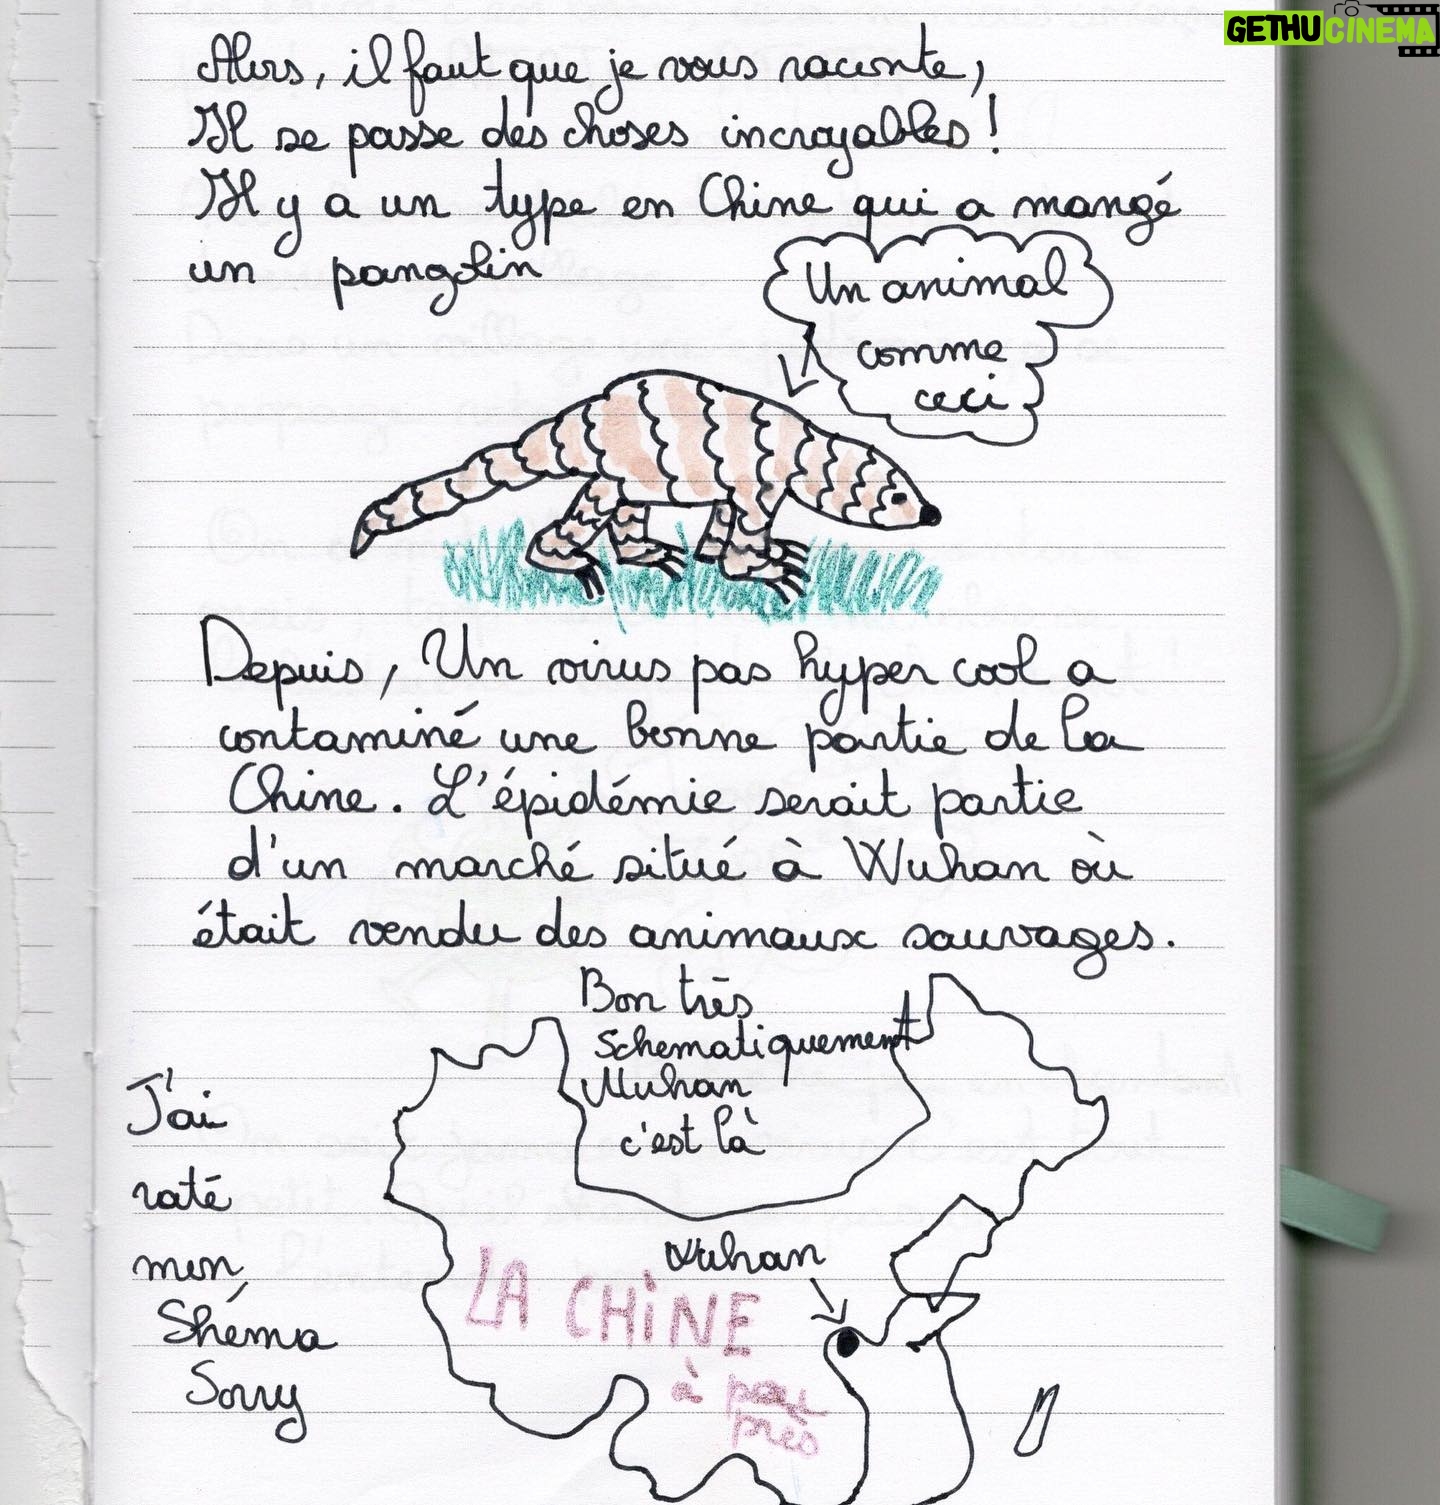 GETHUCINEMA
Alors, il faut que je vous raconte,
Il se passe des choses incroyables !
Il y a un type en Chine qui a mangé
un pangolin
Un animal
comme
ceci
Depuis, Un virus pas hyper cool a
contaminé une bonne partie de la
Chine. L'épidémie serait partie
d'un marché situé à Wuhan où
était vendu des animaux sauvages.
Bon très
schematiquement
Wuhan
c'est là
J'ai
raté
mon
Shéma
Sorry
Wuhan
LA CHiNE
à peu
près